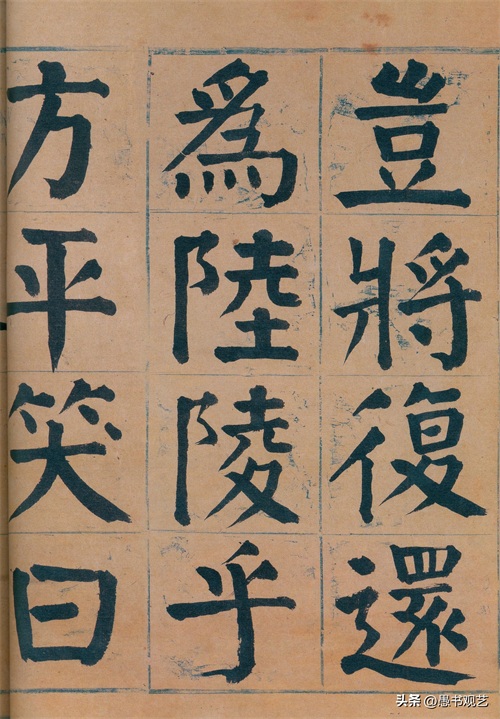 豈將復還
為陸陵乎
方平笑曰
头条 @愚书观艺